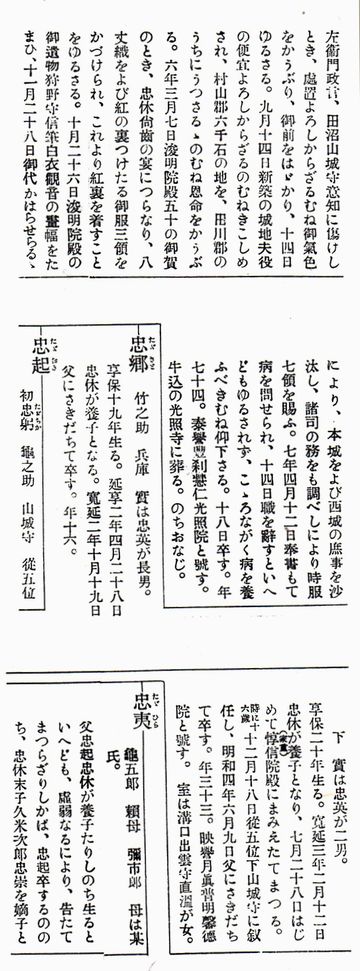 左衞門政言、田沼山城守意知に傷けし
とき、處置よろしからざるむね御氣色
をかうぶり、御前をはゞかり、十四日
ゆるさる。九月十四日新築の城地夫役
の便宜よろしからざるのむねきこしめ
され、村山郡六千石の地を、田川郡の
うちにうつさるゝのむね恩命をかうぶ
る。六年三月七日浚明院殿五十の御賀
のとき、忠休尙齒の宴につらなり、八
丈織をよび紅の裏つけたる御服三領を
かづけられ、これより紅裏を着すこと
をゆるさる。十月二十六日浚明院殿の
御遺物狩野守信筆白衣觀音の畫幅をた
まひ、十一月二十八日御代かはらせらるゝ
により、本城をよび西城の庶事を沙
汰し、諸司の務をも調べしにより時服
七領を賜ふ。七年四月十二日奉書もて
病を問せられ、十四日職を辭すといへ
どもゆるされず、こゝろながく病を養
ふべきむね仰下さる。十八日卒す。年
七十四。泰譽豐刹慧仁光照院と號す。
牛込の光照寺に葬る。のちおなじ。
忠鄕 竹之助 兵庫 實は忠英が長男。
享保十九年生る。延享二年四月二十八日
忠休が養子となる。寬延二年十月十九日
父にさきだちて卒す。年十六。
忠起
初忠躬 龜之助 山城守 從五位
下 實は忠英が二男。
享保二十年生る。寬延三年二月十二日
忠休が養子となり、七月二十八日はじ
めて惇信院殿にまみえたてまつる。
時に十六歲 十二月十八日從五位下山城守に叙
任し、明和四年六月九日父にさきだち
て卒す。年三十三。映譽月眞普明馨德
院と號す。 室は溝口出雲守直溫が女。
忠夷
龜五郎 賴母 彌市郎 母は某
氏。
父忠起忠休が養子たりしのち生ると
いへども、虛弱なるにより、告たて
まつらざりしかば、忠起卒するのの
ち、忠休末子久米次郎忠崇を嫡子と